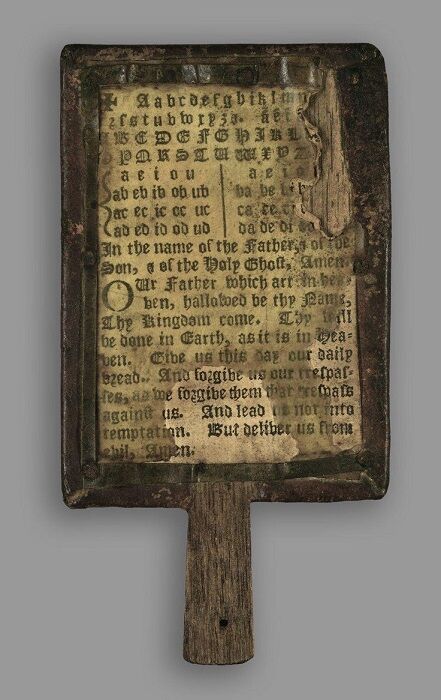 ✠ Aabcdefghiklmn
rsstuvwxyz. aei
ABCDEFGHIKL
OPQRSTUWXYZ
a e i o u a e i o
ab eb ib ob ub ba be bi
ac ec ic oc uc ca ce ci
ad ed id od ud da de di do
In the name of the Father, & of the
Son, & of the Holy Ghost, Amen.
OUr Father which art in hea-
ven, hallowed be thy Name,
Thy Kingdom come. Thy will
be done in Earth, as it is in Hea-
ven. Give us this day our daily
bread. And forgive us our trespas-
ses, as we forgive them that trespass
against us. And lead us not into
temptation. But deliver us from
evil, Amen.